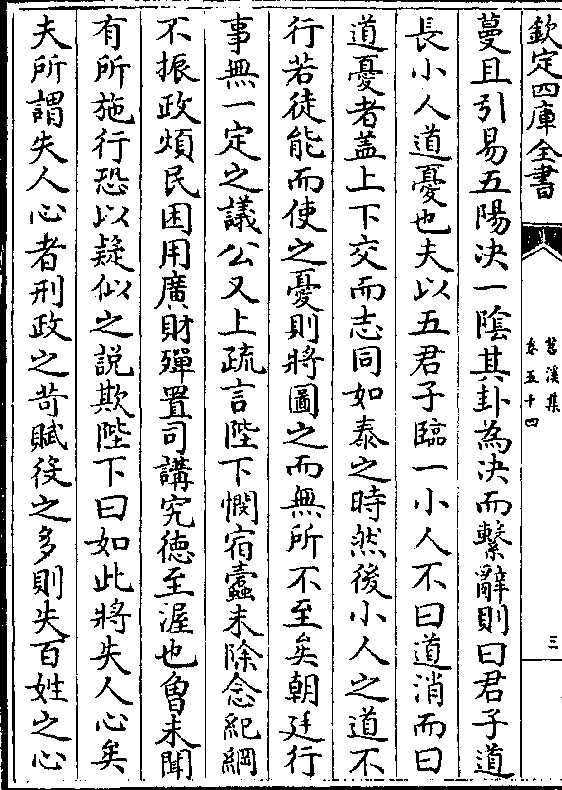 欽定四庫全書
苕溪集
卷五十四
三
蔓且引易五陽决一陰其卦為决而繫辭則曰君子道
長小人道憂也夫以五君子臨一小人不曰道消而曰
道憂者蓋上下交而志同如泰之時然後小人之道不
行若徒能而使之憂則將圖之而無所不至矣朝廷行
事無一定之議公又上疏言陛下憫宿蠧未除念紀綱
不振政煩民困用廣財殫置司講究徳至渥也曾未聞
有所施行恐以疑似之說欺陛下曰如此將失人心矣
夫所謂失人心者刑政之苛賦役之多則失百姓之心